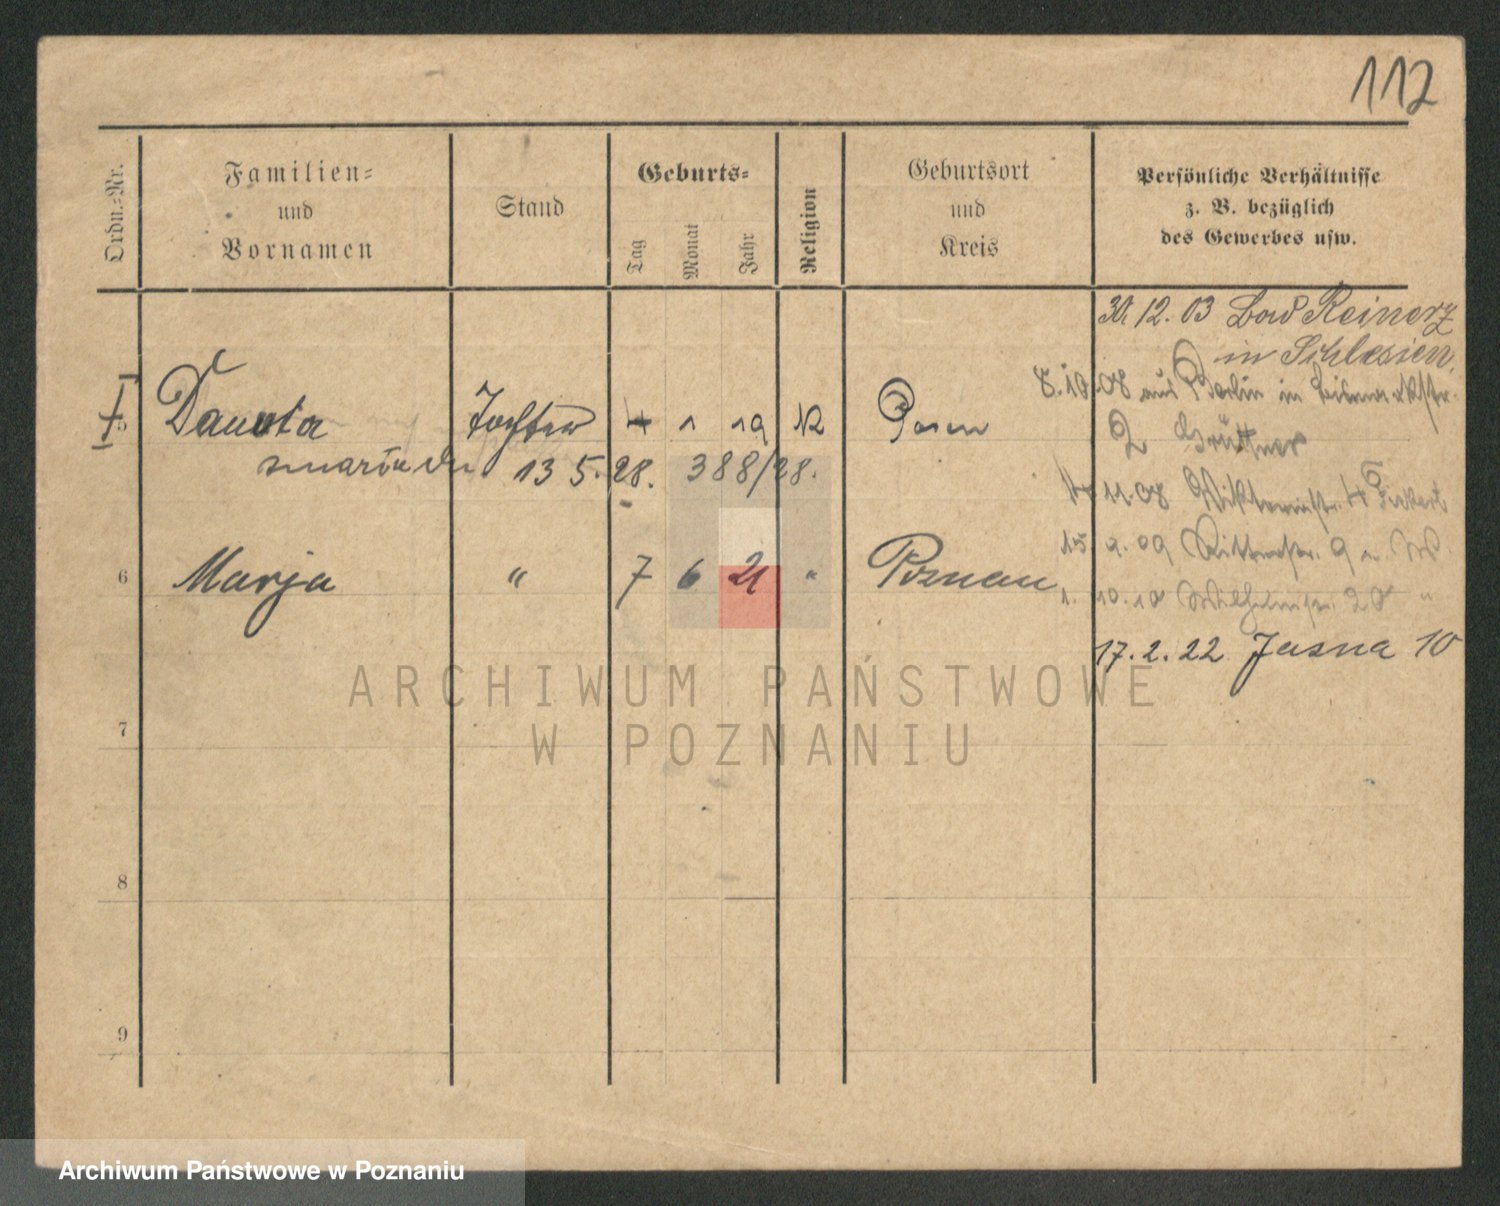 112
Ordn.-Nr.
Familien-
und
Vornamen
Stand
Geburts-
Tag
Monat
Jahr
Religion
Geburtsort
und
Kreis
Persönliche Verhältnisse
z. B. bezüglich
des Gewerbes usw.
30.12.03 Bad Reinerz
in Schlesien.
8.10.08 aus Berlin in Bismarckstr.
2 Grüttner
5 Danuta Tochter 4 1 19 K Posen
11.08 Viktoriastr.
zmarła 13 5. 28. 388/28.
15. 9. 09 Ritterstr. 9
6 Marja " 7 6 21 " Poznan
1. 10. 10 Wilhelmstr. 20 "
17. 2. 22 Jasna 10
ARCHIWUM PAŃSTWOWE
W POZNANIU
7
8
9
Archiwum Państwowe w Poznaniu